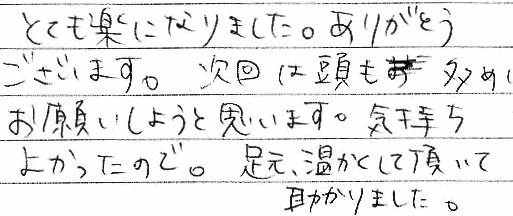 とても楽になりました。ありがとう
ございます。 次回は頭も 多めに
お願いしようと思います。気持ち
よかったので。 足元、温かくして頂いて
助かりました。